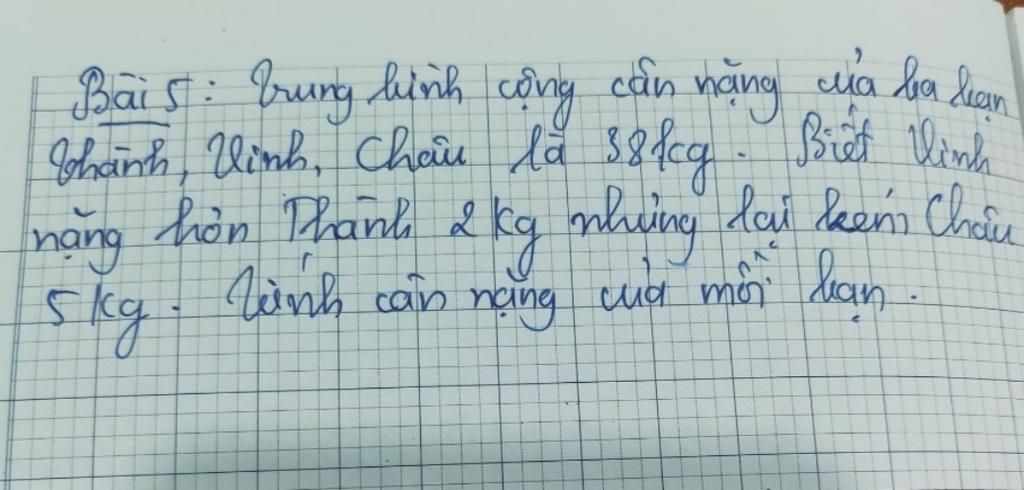 Bài 5: Trung bình cộng cân nặng của ba bạn
Thành, Vinh, Châu là 38kg. Biết Vinh
nặng hơn Thành 2kg nhưng lại kém Châu
5kg. Tính cân nặng của mỗi bạn.